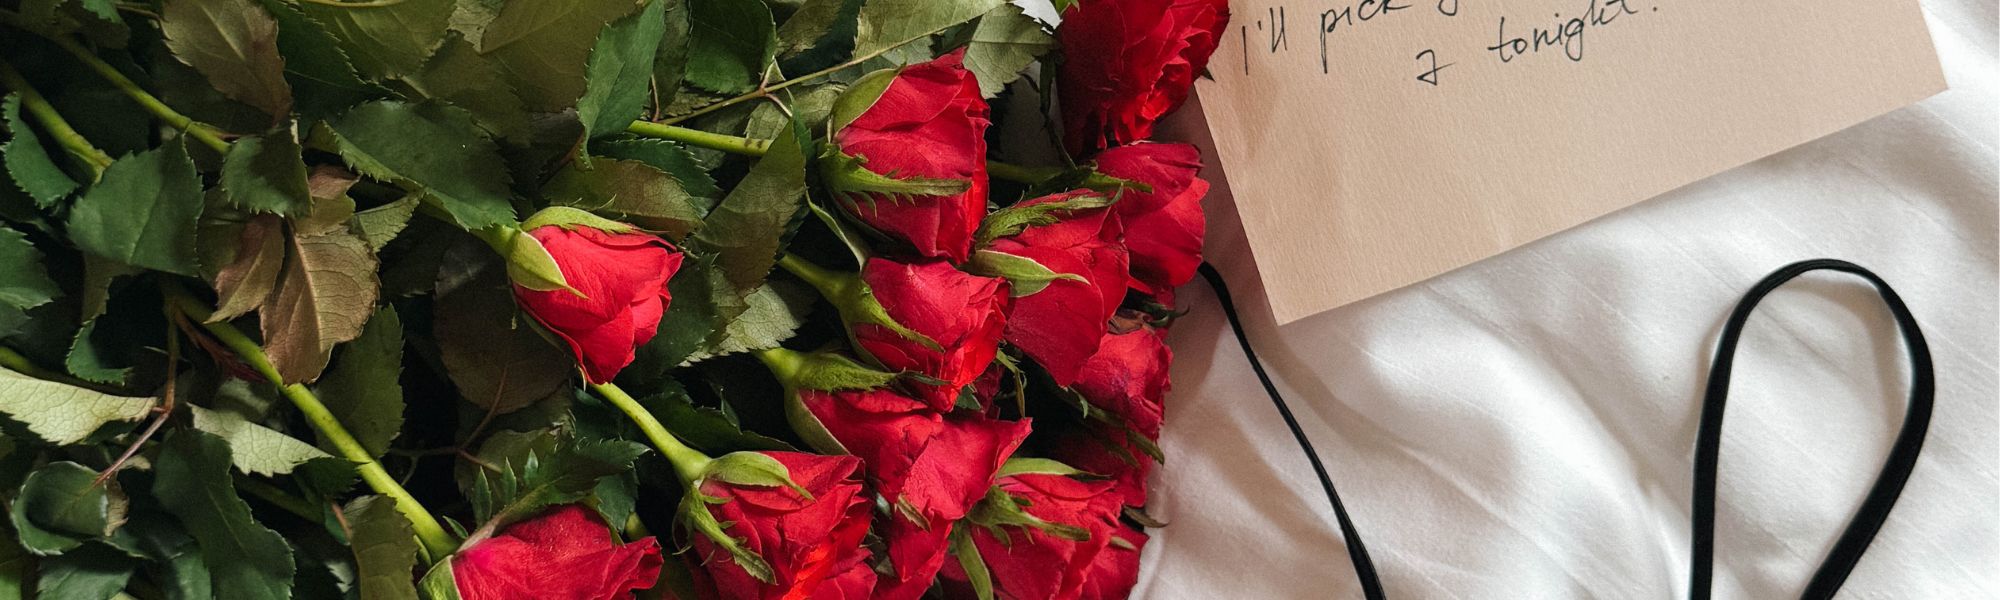 I'll pick
7 tonight!